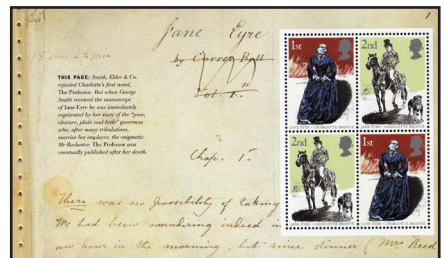 1
Jane Eyre
by Currer Bell
Vol. 1st
THIS PAGE: Smith, Elder & Co.
rejected Charlotte's first novel,
The Professor. But when George
Smith received the manuscript
of Jane Eyre he was immediately
captivated by her story of the "poor,
obscure, plain and little" governess
who, after many tribulations,
marries her employer, the enigmatic
Mr Rochester. The Professor was
eventually published after her death.
Chap. 1st
There was no possibility of taking
We had been wandering indeed in
an hour in the morning, but since dinner (Mrs Reed
1st
2nd
2nd
1st
JANE EYRE CHARLOTTE BRONTË
JANE EYRE CHARLOTTE BRONTË